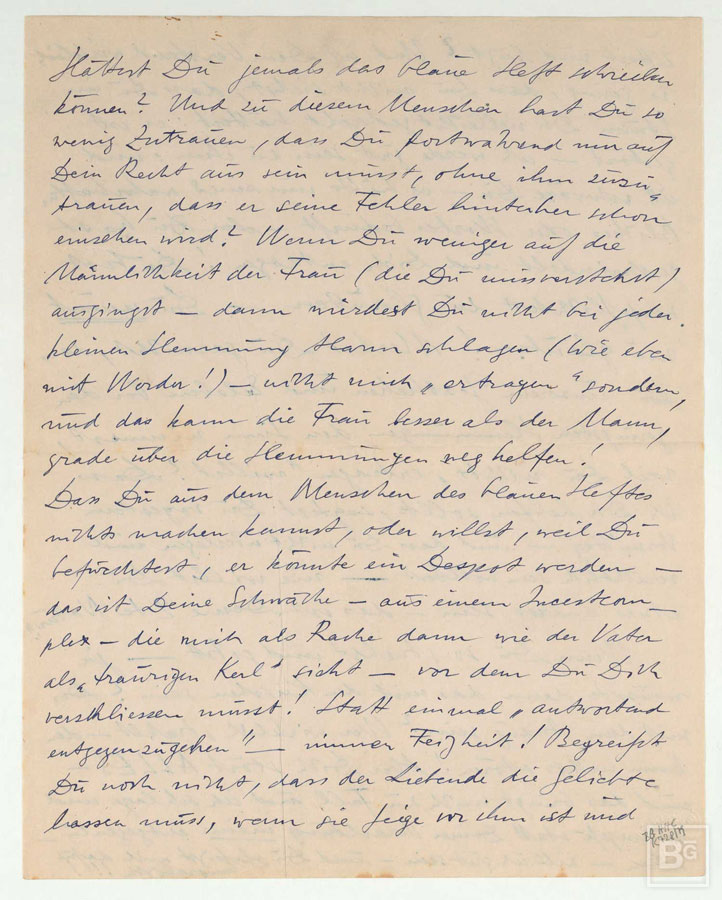 Hättest Du jemals das blaue Heft schreiben
können? Und zu diesem Menschen hast Du so
wenig Zutrauen, dass Du fortwährend nur auf
Dein Recht aus sein musst, ohne ihm zuzu-
trauen, dass er seine Fehler hinterher schon
einsehen wird? Wenn Du weniger auf die
Männlichkeit der Frau (die Du missverstehst)
ausgingst – dann würdest Du nicht bei jeder
kleinen Hemmung schlagen (wie eben
mit Worder!) – nicht mich „ertragen“ sondern,
und das kann die Frau besser als der Mann,
grade über die Hemmungen weg helfen!
Dass Du aus dem Menschen des blauen Heftes
nichts machen kannst, oder willst, weil Du
befürchtest, er könnte ein Despot werden –
das ist Deine Schwäche – aus einem Incestcom-
plex – die mich als Rache dann wie der Vater
als „traurigen Kerl“ sieht – vor dem Du Dich
verschliessen musst! Statt einmal „antwortend
entgegenzugehen“ – immer Feigheit! Begreifst
Du noch nicht, dass der Liebende die Geliebte
hassen muss, wenn sie feige vor ihm ist und
BG